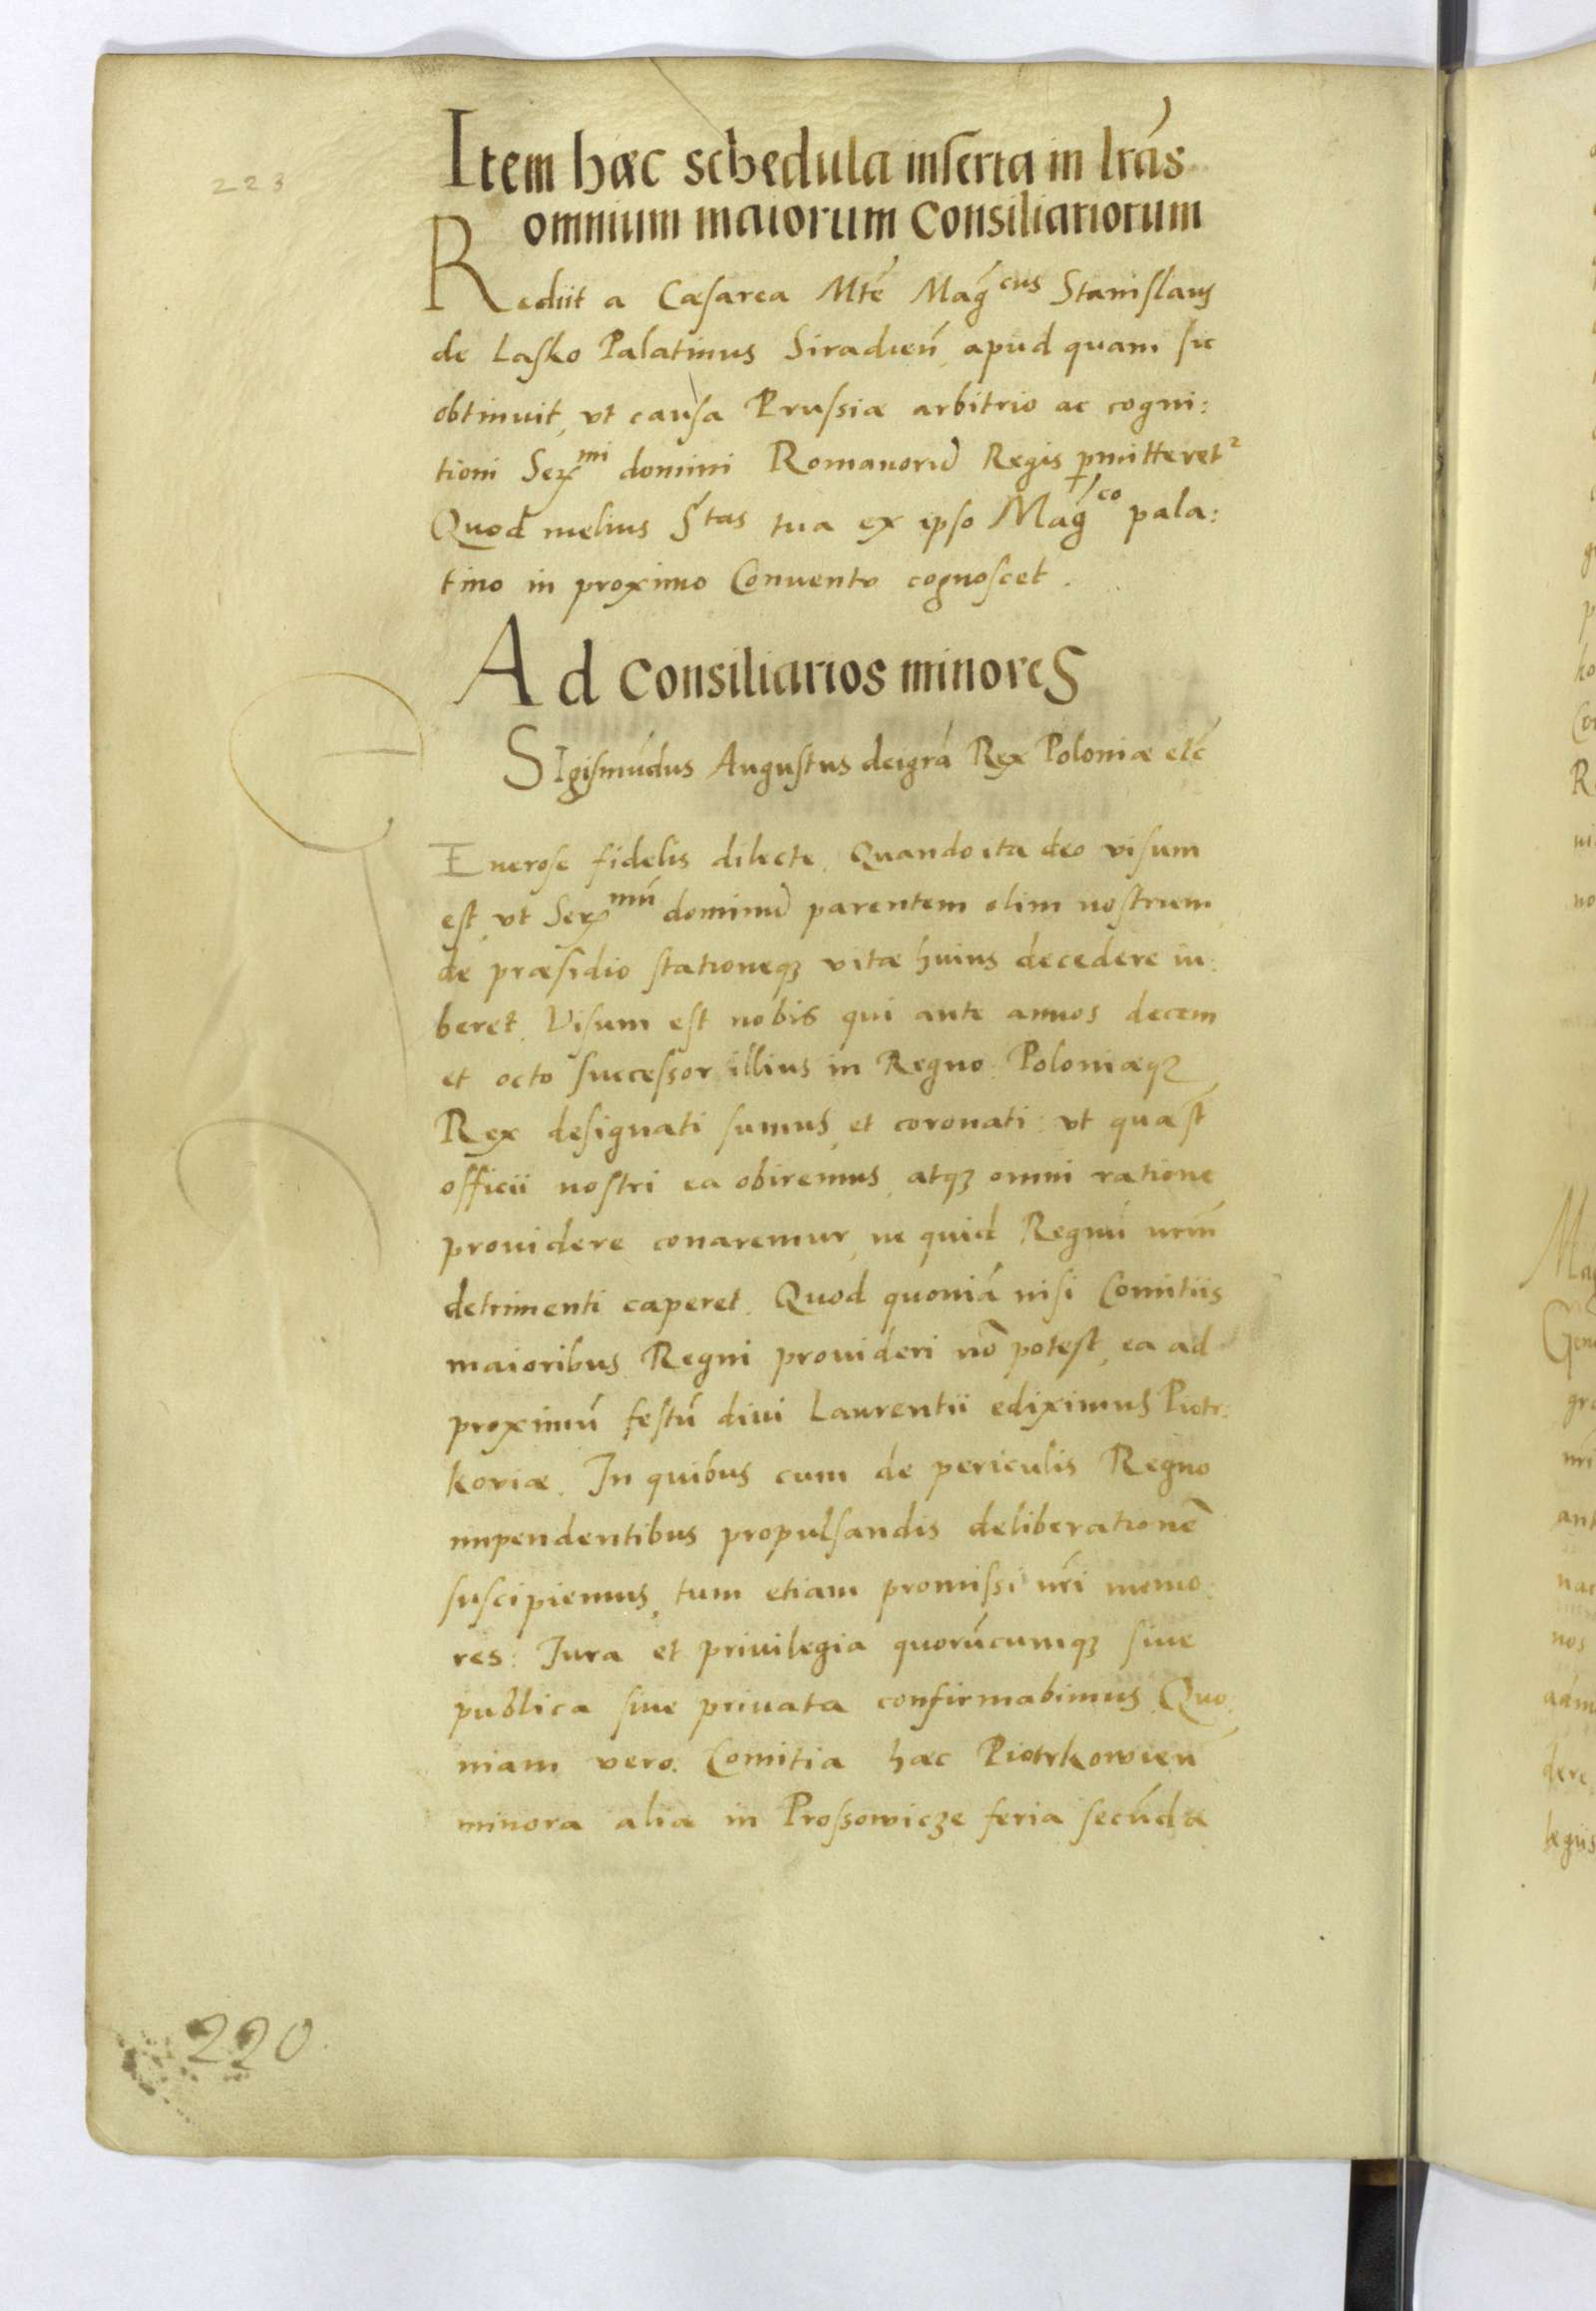 223
Item hæc schedula inserta in lrás
omnium maiorum Consiliariorum
Rediit a Cæsarea Mtē Mag̃cus Stanislaus
de Lasko Palatinus Siradień, apud quam sic
obtinuit, vt causa Prussiæ arbitrio ac cogni:
tioni Serᵐⁱ domini Romanorū Regis ꝑmitteret²
Quod melius Śtas tua ex ipso Mag̃co pala:
tino in proximo Conuentu cognoscet.
Ad Consiliarios minores
SIgismūdus Augustus deigrá Rex Poloniæ etć
Enerose fidelis dilecte. Quando ita deo visum
est, vt Serᵐū dominū parentem olim nostrum
de præsidio stationeqȝ vitæ huius decedere iu:
beret. Visum est nobis qui ante annos decem
et octo successor illius in Regno Poloniæqȝ
Rex designati sumus, et coronati: vt quæ st̄
officii nostri ea obiremus, atqȝ omni ratione
prouidere conaremur, ne quid Regnū nrm̄
detrimenti caperet. Quod quoniā nisi Comitiis
maioribus Regni prouideri nō potest, ea ad
proximū festū diui Laurentii ediximus Piotr:
koviæ. In quibus cum de periculis Regno
impendentibus propulsandis deliberationē
suscipiemus, tum etiam promissi nri̅ memo:
res: Jura et priuilegia quorūcumqȝ siue
publica siue priuata confirmabimus. Quo:
niam vero. Comitia hæc Piotrkowień
minora alia in Prossowicze feria secūda
220